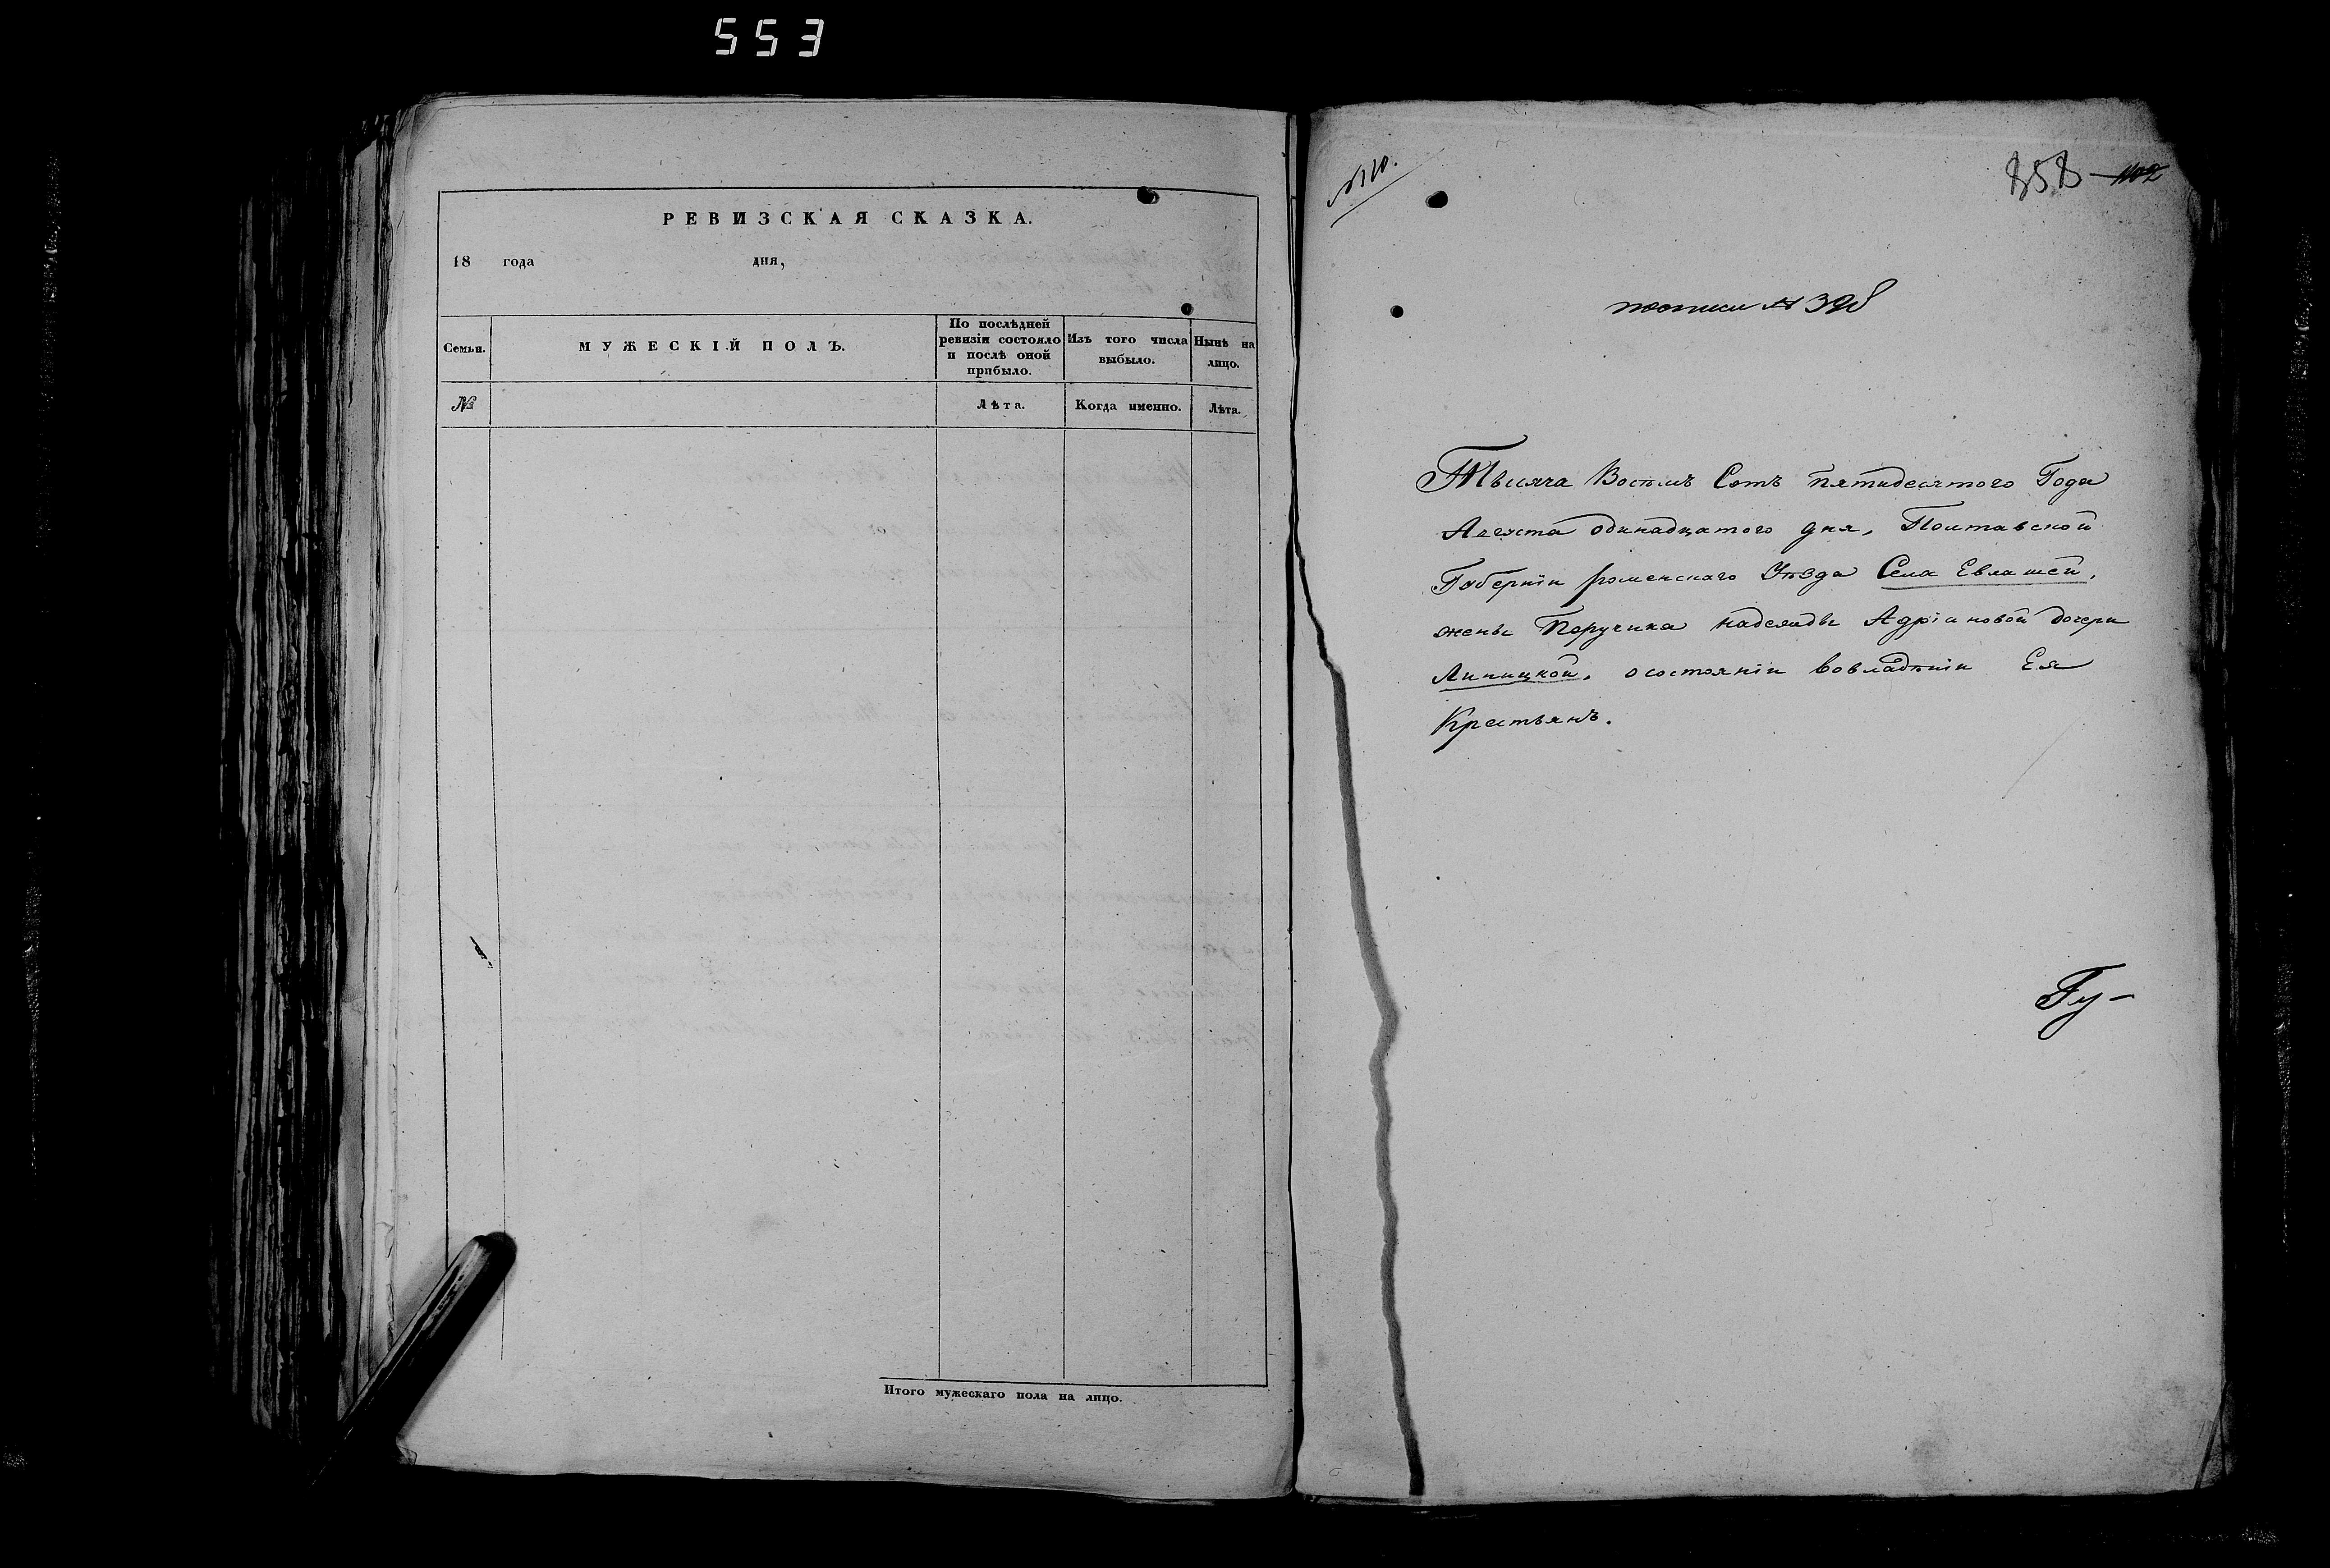 553
РЕВИЗСКАЯ СКАЗКА.
18 года дня,
Семьи.
МУЖЕСКІЙ ПОЛЪ.
По послѣдней
ревизіи состояло
и послѣ оной
прибыло.
Изъ того числа
выбыло.
Нынѣ на
лицо.
№
Лѣта.
Когда именно.
Лѣта.
Итого мужескаго пола на лицо.
858
пописи №
Тысяча Восемъ Сотъ пятидесятого Года
Августа одинадцатого дня, Полтавской
Губерніи роменскаго Уѣзда Села Евлашей,
жены Поручика надежды Адріановой дочери
Липицкой, осостояніи вовладѣніи Ея
Крестьянъ.
Гу-